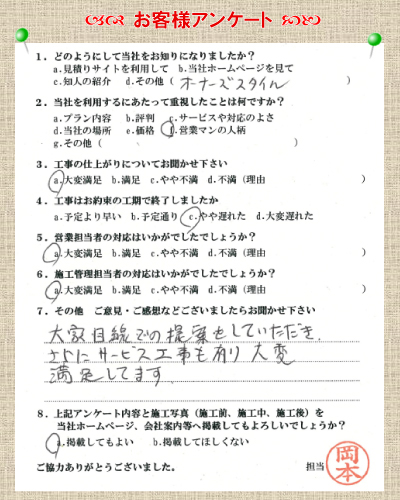 お客様アンケート
1．どのようにして当社をお知りになりましたか？
a.見積りサイトを利用して b.当社ホームページを見て
c.知人の紹介 d.その他（ オーナーズスタイル ）
2．当社を利用するにあたって重視したことは何ですか？
a.プラン内容 b.評判 c.サービスや対応のよさ
d.当社の場所 e.価格 f.営業マンの人柄
g.その他（ ）
3．工事の仕上がりについてお聞かせ下さい
a.大変満足 b.満足 c.やや不満 d.不満（理由 ）
4．工事はお約束の工期で終了しましたか
a.予定より早い b.予定通り c.やや遅れた d.大変遅れた
5．営業担当者の対応はいかがでしたでしょうか？
a.大変満足 b.満足 c.やや不満 d.不満（理由 ）
6．施工管理担当者の対応はいかがでしたでしょうか？
a.大変満足 b.満足 c.やや不満 d.不満（理由 ）
7．その他 ご意見・ご感想などございましたらお聞かせ下さい
大家目線での提案をしていただき、
さらにサービス工事も有り 大変
満足してます。
8．上記アンケート内容と施工写真（施工前、施工中、施工後）を
当社ホームページ、会社案内等へ掲載してもよろしいでしょうか？
a.掲載してもよい b.掲載してほしくない
ご協力ありがとうございました。 担当 岡本